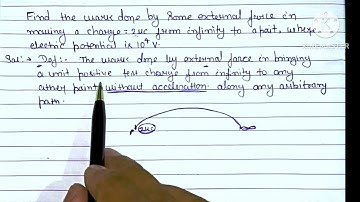 Find the work done by some external force in
moving a charge = 2uc from infinity to a point, where
electric potential is 10⁴ V.
Sol:→ Def:- The work done by external force in bringing
a unit positive test charge from infinity to any
other point without acceleration along any arbitrary
path.
2uc ∞